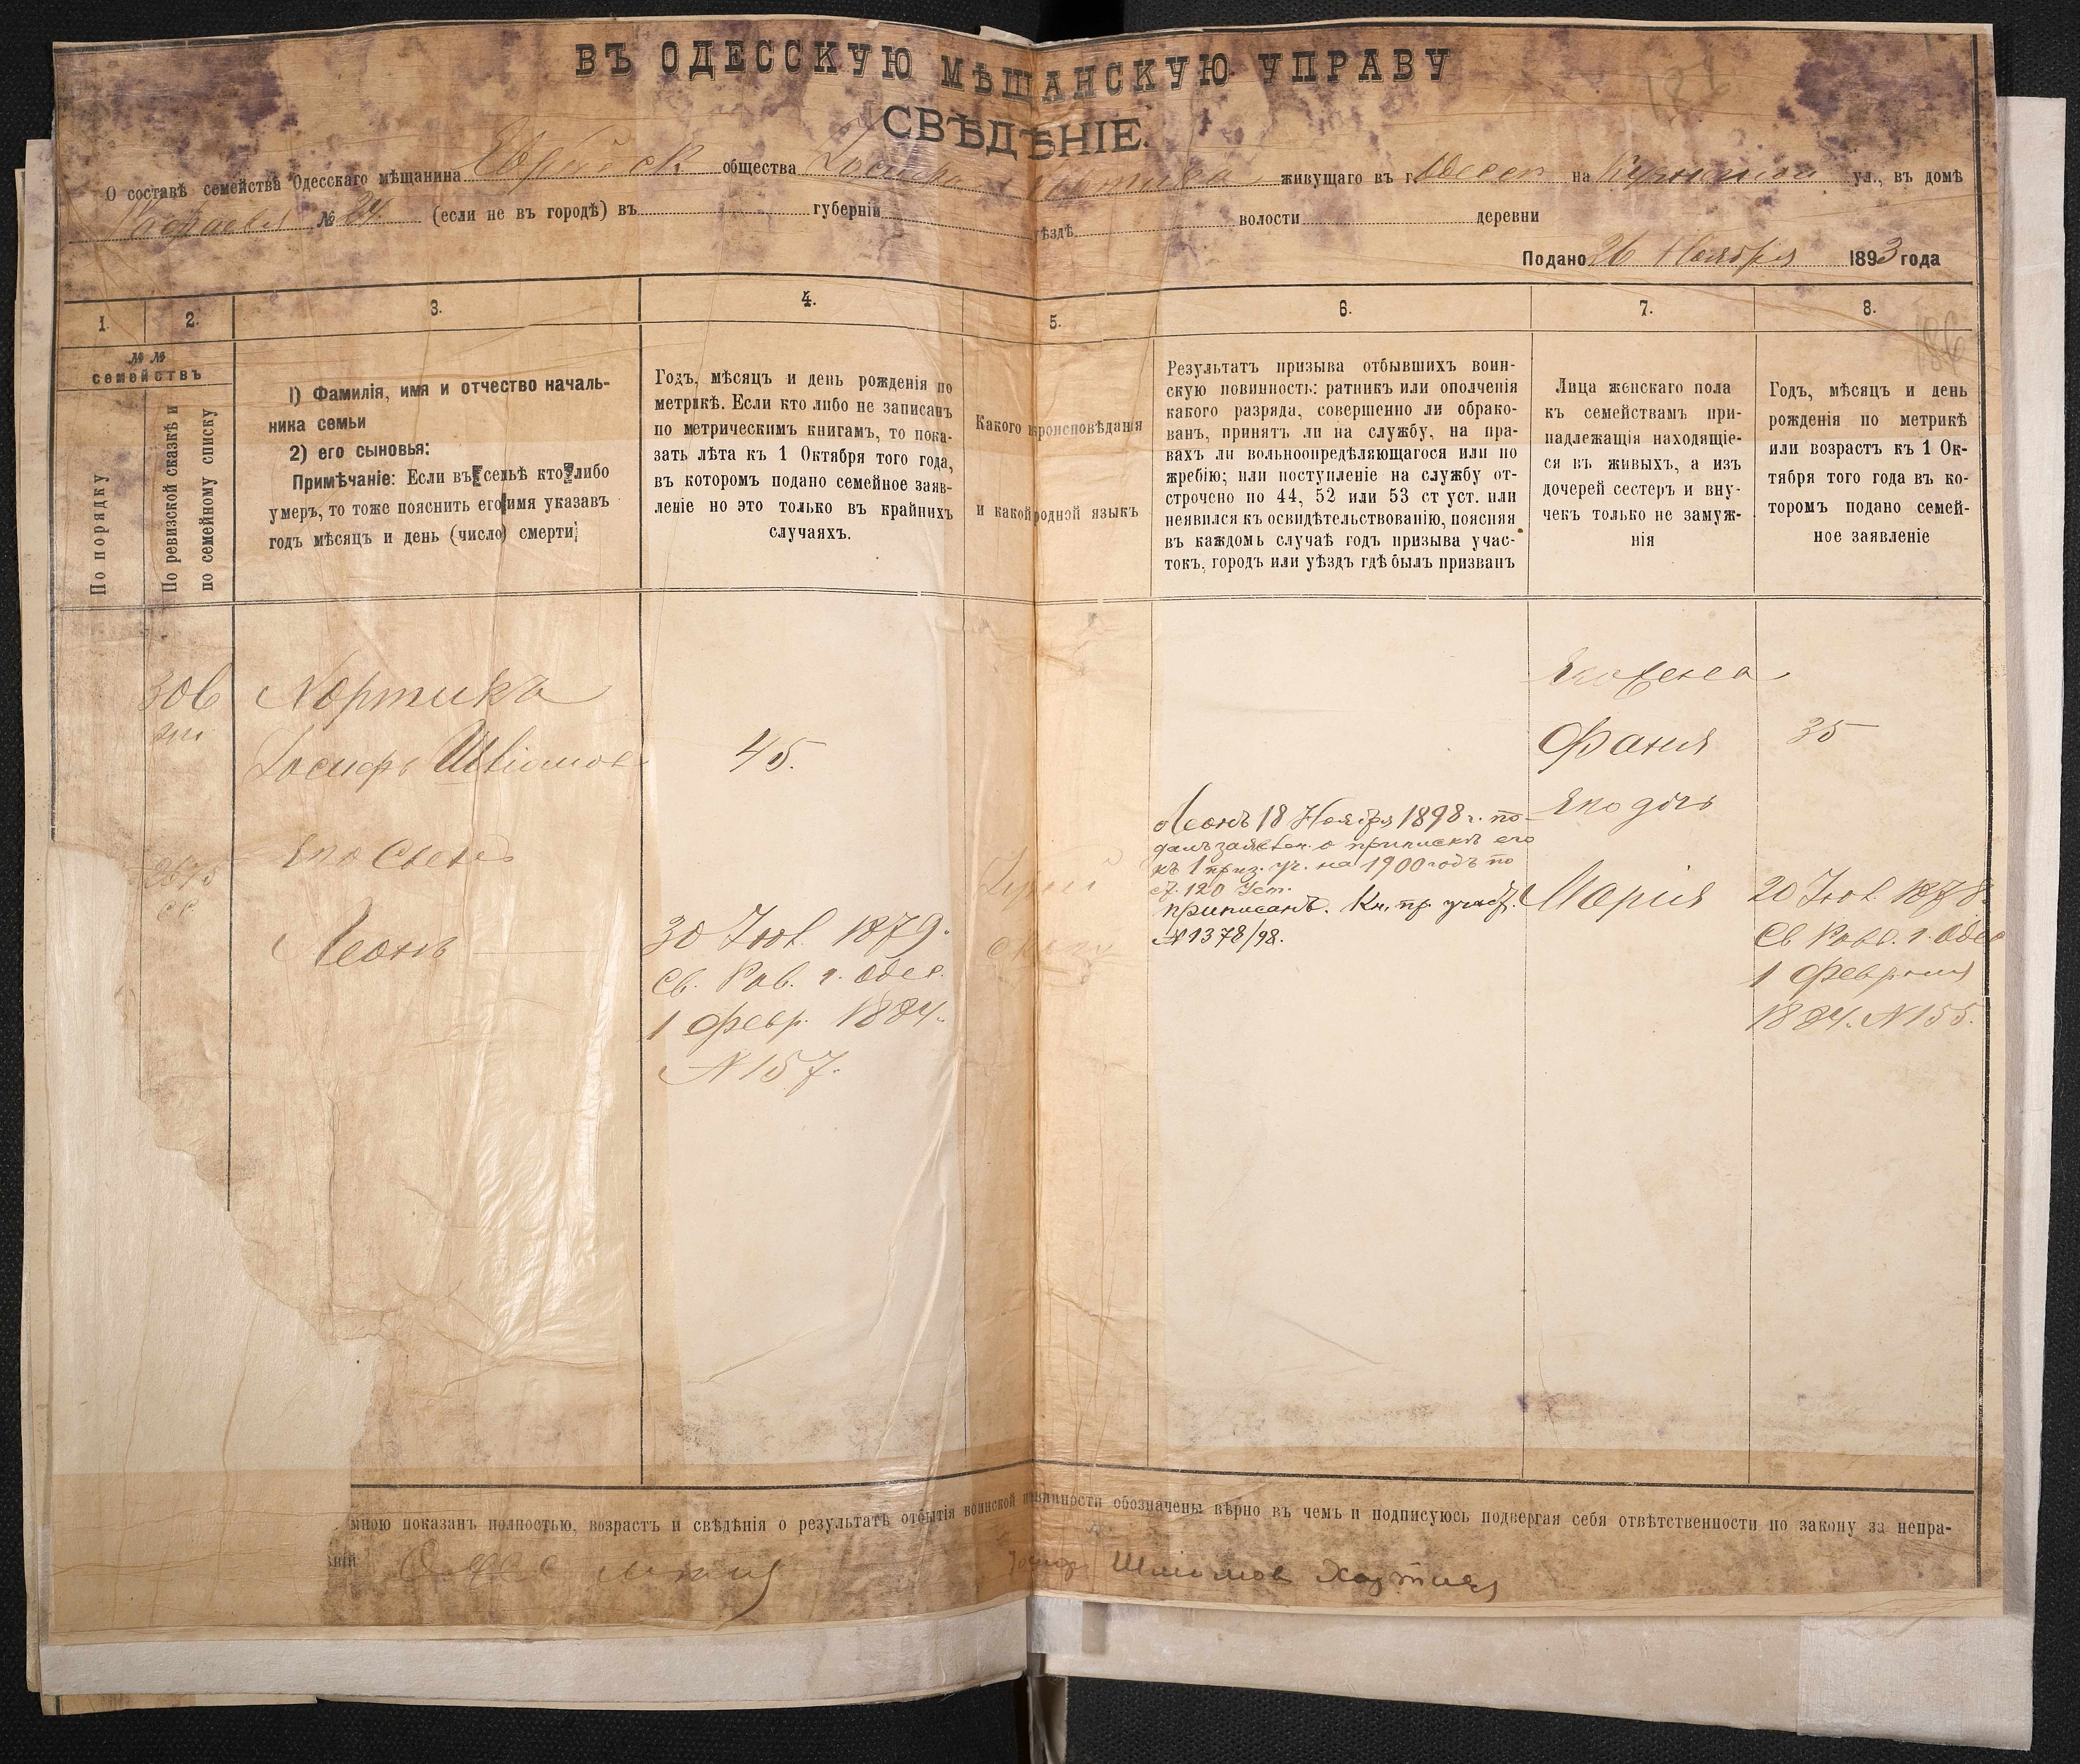 ВЪ ОДЕССКУЮ МѢЩАНСКУЮ УПРАВУ
СВѢДѢНІЕ.
О составѣ семейства Одесскаго мѣщанина Еврейск общества Іосифа живущаго въ г. Одессѣ на ул., въ домѣ
№ 24 (если не въ городѣ) въ губерніи уѣздѣ волости деревни
Подано 26 Ноября 1893 года
1. 2. 3. 4. 5. 6. 7. 8.
№ № семействъ
По порядку
По ревизской сказкѣ и
по семейному списку
1) Фамилія, имя и отчество началь-
ника семьи
2) его сыновья:
Примѣчаніе: Если въ семьѣ кто либо
умеръ, то тоже пояснить его имя указавъ
годъ мѣсяцъ и день (число) смерти
Годъ, мѣсяцъ и день рожденія по
метрикѣ. Если кто либо не записанъ
по метрическимъ книгамъ, то пока-
зать лѣта къ 1 Октября того года,
въ которомъ подано семейное заяв-
леніе но это только въ крайнихъ
случаяхъ.
Какого вроисповѣданія
и какой родной языкъ
Результатъ призыва отбывшихъ воин-
скую повинность: ратникъ или ополченія
какого разряда, совершенно ли обрако-
ванъ, принятъ ли на службу, на пра-
вахъ ли вольноопредѣляющагося или по
жребію; или поступленіе на службу от-
строчено по 44, 52 или 53 ст уст. или
неявился къ освидѣтельствованію, поясняя
въ каждомъ случаѣ годъ призыва учас-
токъ, городъ или уѣздъ гдѣ былъ призванъ
Лица женскаго пола
къ семействамъ при-
надлежащія находящіе-
ся въ живыхъ, а изъ
дочерей сестеръ и вну-
чекъ только не замуж-
нія
Годъ, мѣсяцъ и день
рожденія по метрикѣ
или возрастъ къ 1 Ок-
тября того года въ ко-
торомъ подано семей-
ное заявленіе
306 Хортикъ
Іосифъ Шліомовъ 45.
Его сынъ
Леонъ
30 Іюл. 1879.
Св. Рав. г. Одес.
1 Февр. 1884.
№ 157.
Леонъ 18 Ноября 1898 г. по-
далъ заявлен. о припискѣ его
къ 1 приз. уч. на 1900 годъ по
ст. 120 Уст.
приписанъ. Кн. пр. участ.
№ 1378/98.
Его жена
Фаня 35
Его дочь
Марія
20 Іюл. 1878.
Св. Равв. г. Одес
1 Февраля
1884. № 155.
мною показанъ полностью, возрастъ и свѣдѣнія о результатѣ отбытія воинской повинности обозначены вѣрно въ чемъ и подписуюсь подвергая себя отвѣтственности по закону за непра-
Шлиомов Хортик